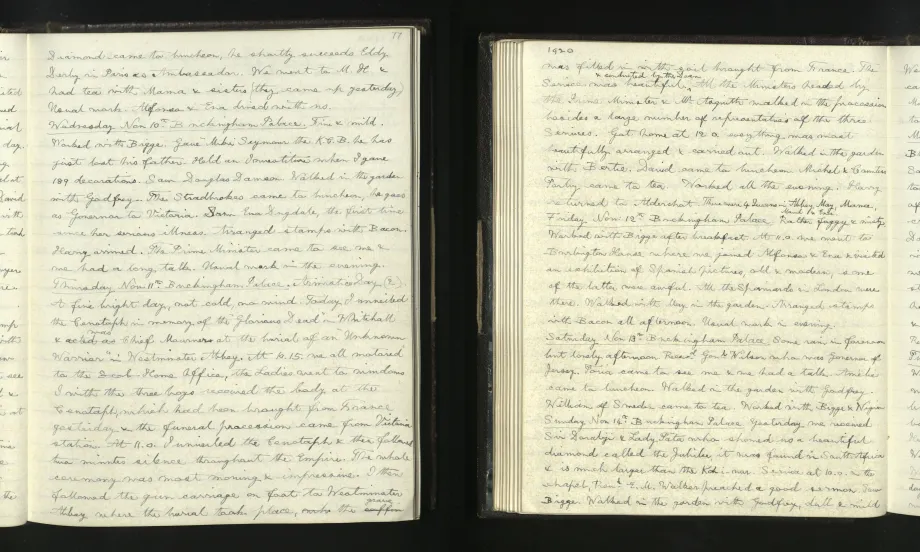 77
Diamond came to luncheon, he shortly succeeds Eddy
Derby in Paris as Ambassador. We went to M.H. &
had tea with Mama & sisters (they came up yesterday)
Usual work. Alfonso & Ena dined with us.
Wednesday Nov. 10th Buckingham Palace. Fine & mild.
Worked with Bigge. Gave Mike Seymour the K.C.B. he has
just lost his father. Held an Investiture when I gave
189 decorations. Saw Douglas Dawson. Walked in the garden
with Godfrey. The Stradbrokes came to luncheon, he goes
as Governor to Victoria. Saw Eva Dugdale, the first time
since her serious illness. Arranged stamps with Bacon.
Harry arrived. The Prime Minister came to see me &
we had a long talk. Usual work in the evening.
Thursday Nov. 11th Buckingham Palace. Armistice Day (2).
A fine bright day, not cold, no wind. Today I unveiled
the Cenotaph in memory of the "Glorious Dead" in Whitehall
& was acted as Chief Mourner at the burial of an "Unknown
Warrior" in Westminster Abbey. At 10.15. we all motored
to the Home Office, the Ladies went to windows
I with the three boys received the body at the
Cenotaph, which had been brought from France
yesterday & the funeral procession came from Victoria
station. At 11.0. I unveiled the Cenotaph & then followed
two minutes silence throughout the Empire. The whole
ceremony was most moving & impressive. I then
followed the gun carriage on foot to Westminster
Abbey where the burial took place, the grave coffin
1920
was filled in with soil brought from France. The
Service was beautiful & conducted by the Dean. All the Ministers headed by
the Prime Minister & Mr. Asquith walked in the procession
besides a large number of representatives of the three
Services. Got home at 12 & everything was most
beautifully arranged & carried out. Walked in the garden
with Bertie. David came to luncheon.
Party came to tea. Worked all the evening. Harry
returned to Aldershot. There were 4 Queens in Abbey, May, Mama,
Maud & Ena
Friday Nov. 12th Buckingham Palace. Rather foggy &
Worked with Bigge after breakfast. At 11.0. we went to
Burlington House where we joined Alfonso & Ena & visited
an exhibition of Spanish pictures, old & modern, some
of the latter were awful. All the Spaniards in London were
there. Walked with May in the garden. Arranged stamps
with Bacon all afternoon. Usual work in evening.
Saturday Nov. 13th Buckingham Palace. Some rain in forenoon
but lovely afternoon. Wilson who was Governor of
Jersey came to see me & we had a talk.
came to luncheon. Walked in the garden with Godfrey.
William of Sweden came to tea. Worked with Bigge & Wigram
Sunday Nov. 14th Buckingham Palace. Yesterday, we received
Sir Dorabji & Lady Tata who showed us a beautiful
diamond called the Jubilee, it was found in South Africa
& is much larger than the Koh-i-nor. Service at 10.0. in the
chapel, Walker preached a good sermon. Saw
Bigge. Walked in the garden with Godfrey, dull & mild